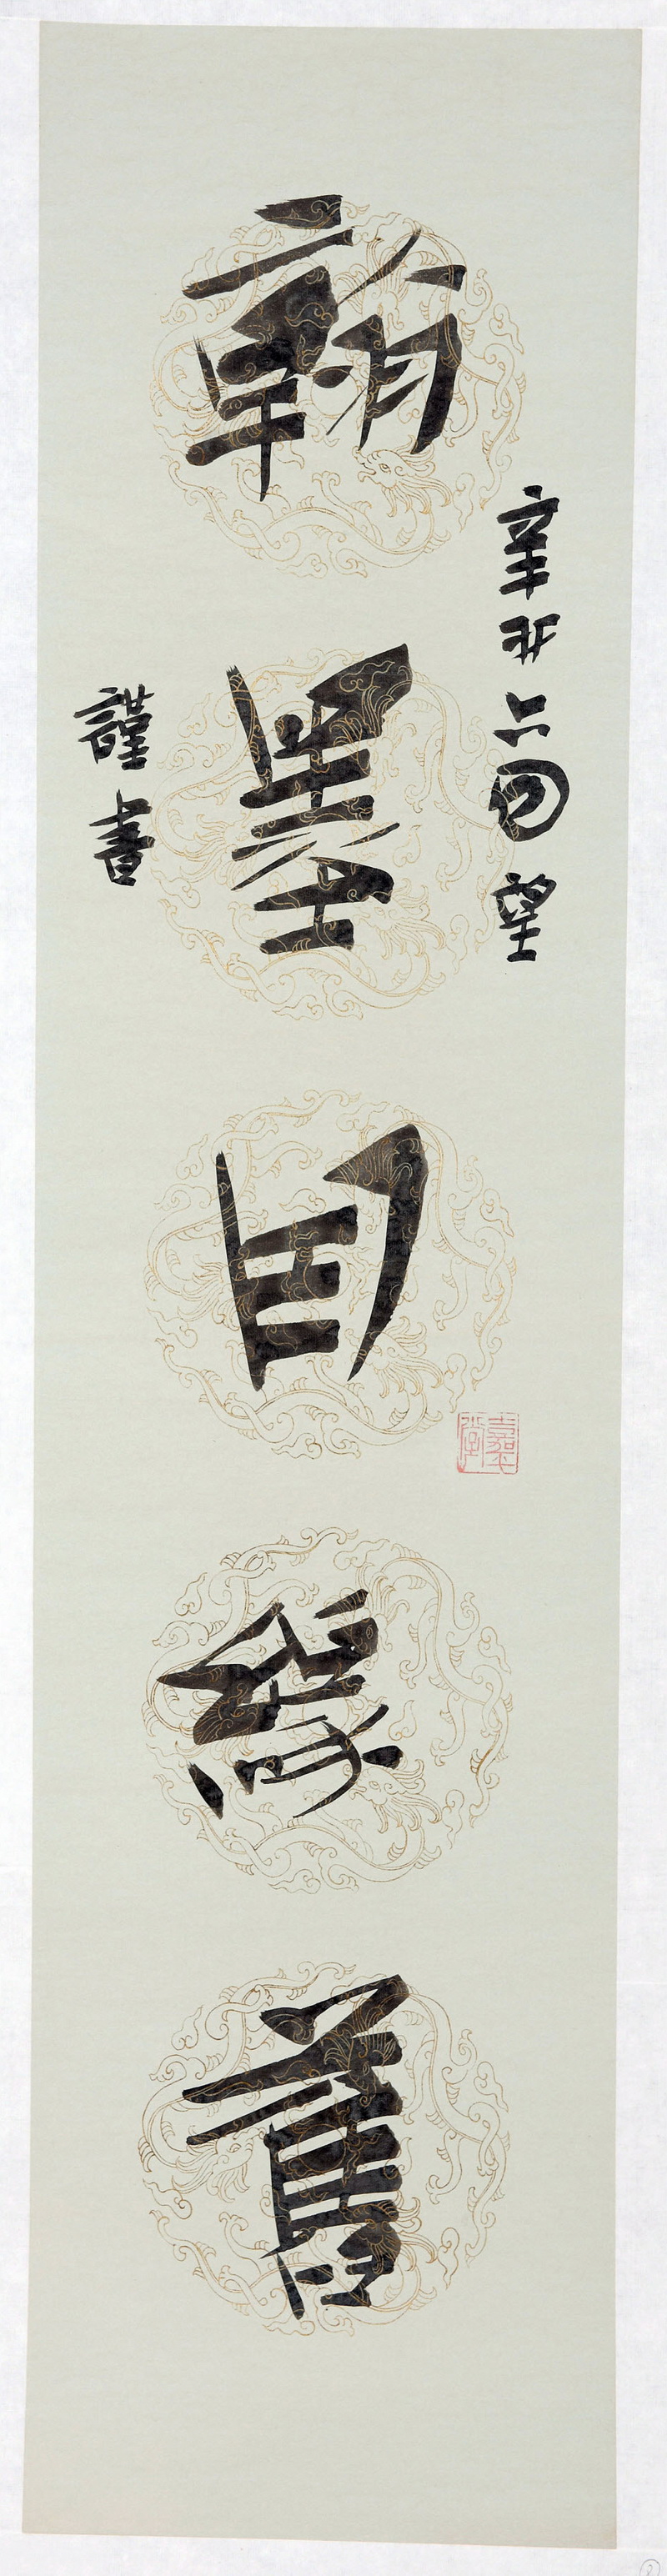 辛丑六月望
翰墨因緣舊
謹書